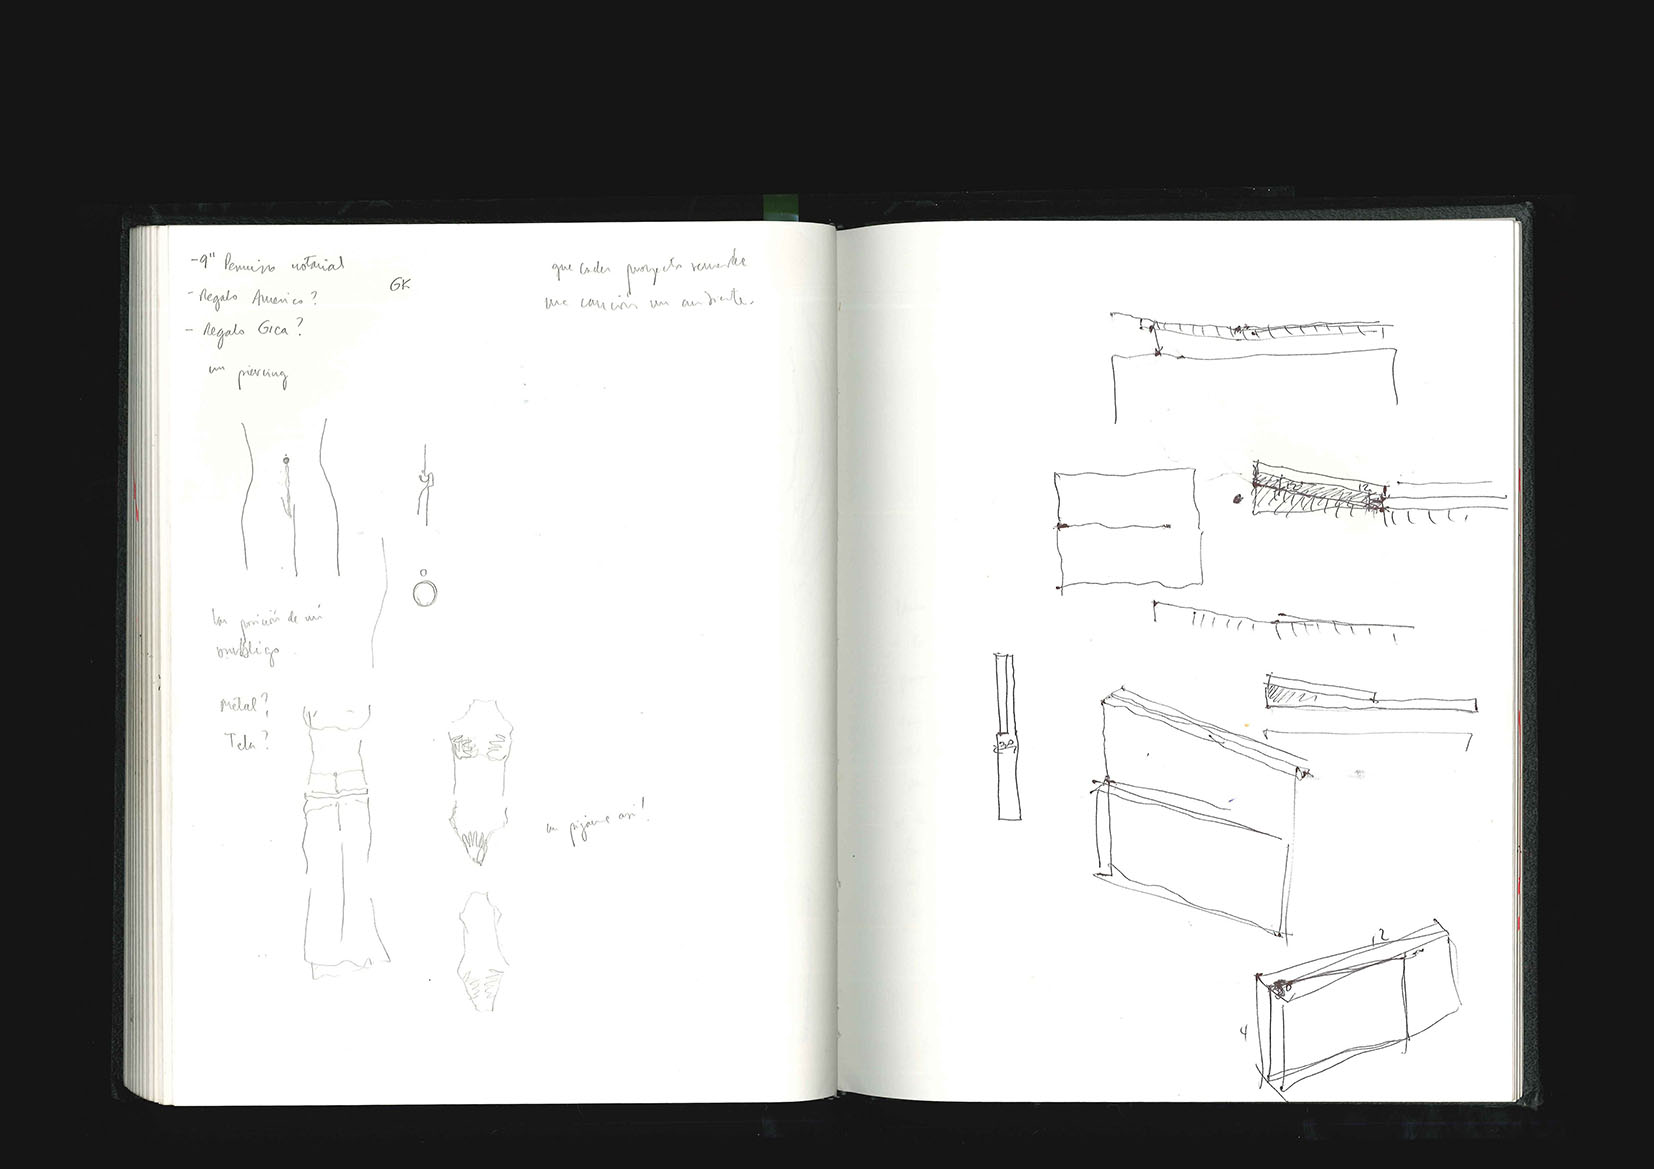 -9" Permiso notarial
GK
- Regalo Américo?
- Regalo Gica?
un piercing
que cada proyecto
una canción un
la posición de mi
ombligo
Metal?
Tela?
un pijama así!
12
12
30
12
4